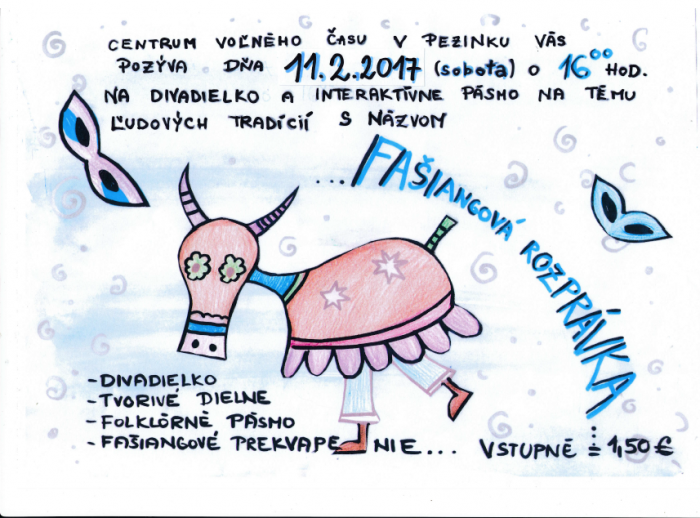 CENTRUM VOĽNÉHO ČASU V PEZINKU VÁS
POZÝVA DŇA 11.2.2017 (sobota) O 16⁰⁰ HOD.
NA DIVADIELKO A INTERAKTÍVNE PÁSMO NA TÉMU
ĽUDOVÝCH TRADÍCIÍ S NÁZVOM
...FAŠIANGOVÁ ROZPRÁVKA...
-DIVADIELKO
-TVORIVÉ DIELNE
-FOLKLÓRNE PÁSMO
-FAŠIANGOVÉ PREKVAPENIE...
VSTUPNÉ = 1,50 €